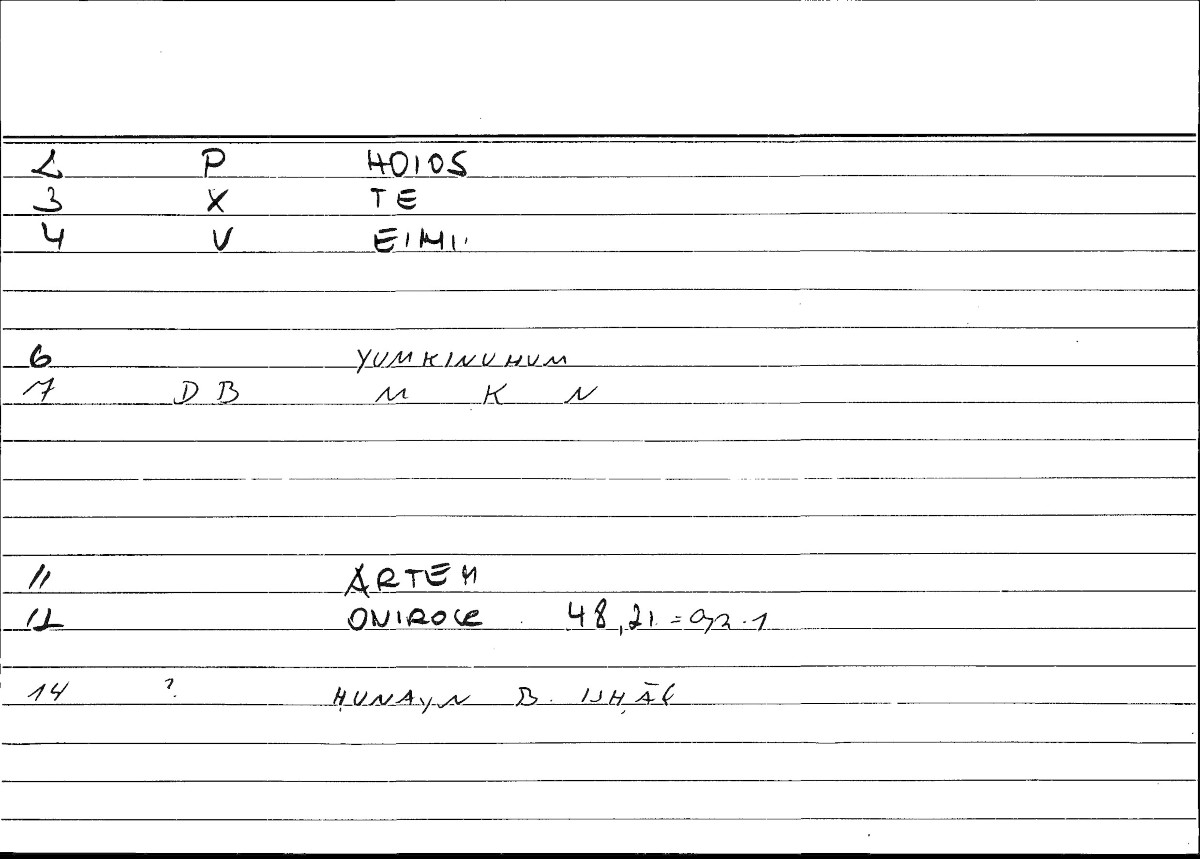 2 P HOIOS
3 X TE
4 V EIMI
6 YUMKINUHUM
7 DB M K N
11 ARTEM
12 ONIROCR 48,21 =
14 ? ḤUNAYN B. ISḤĀQ